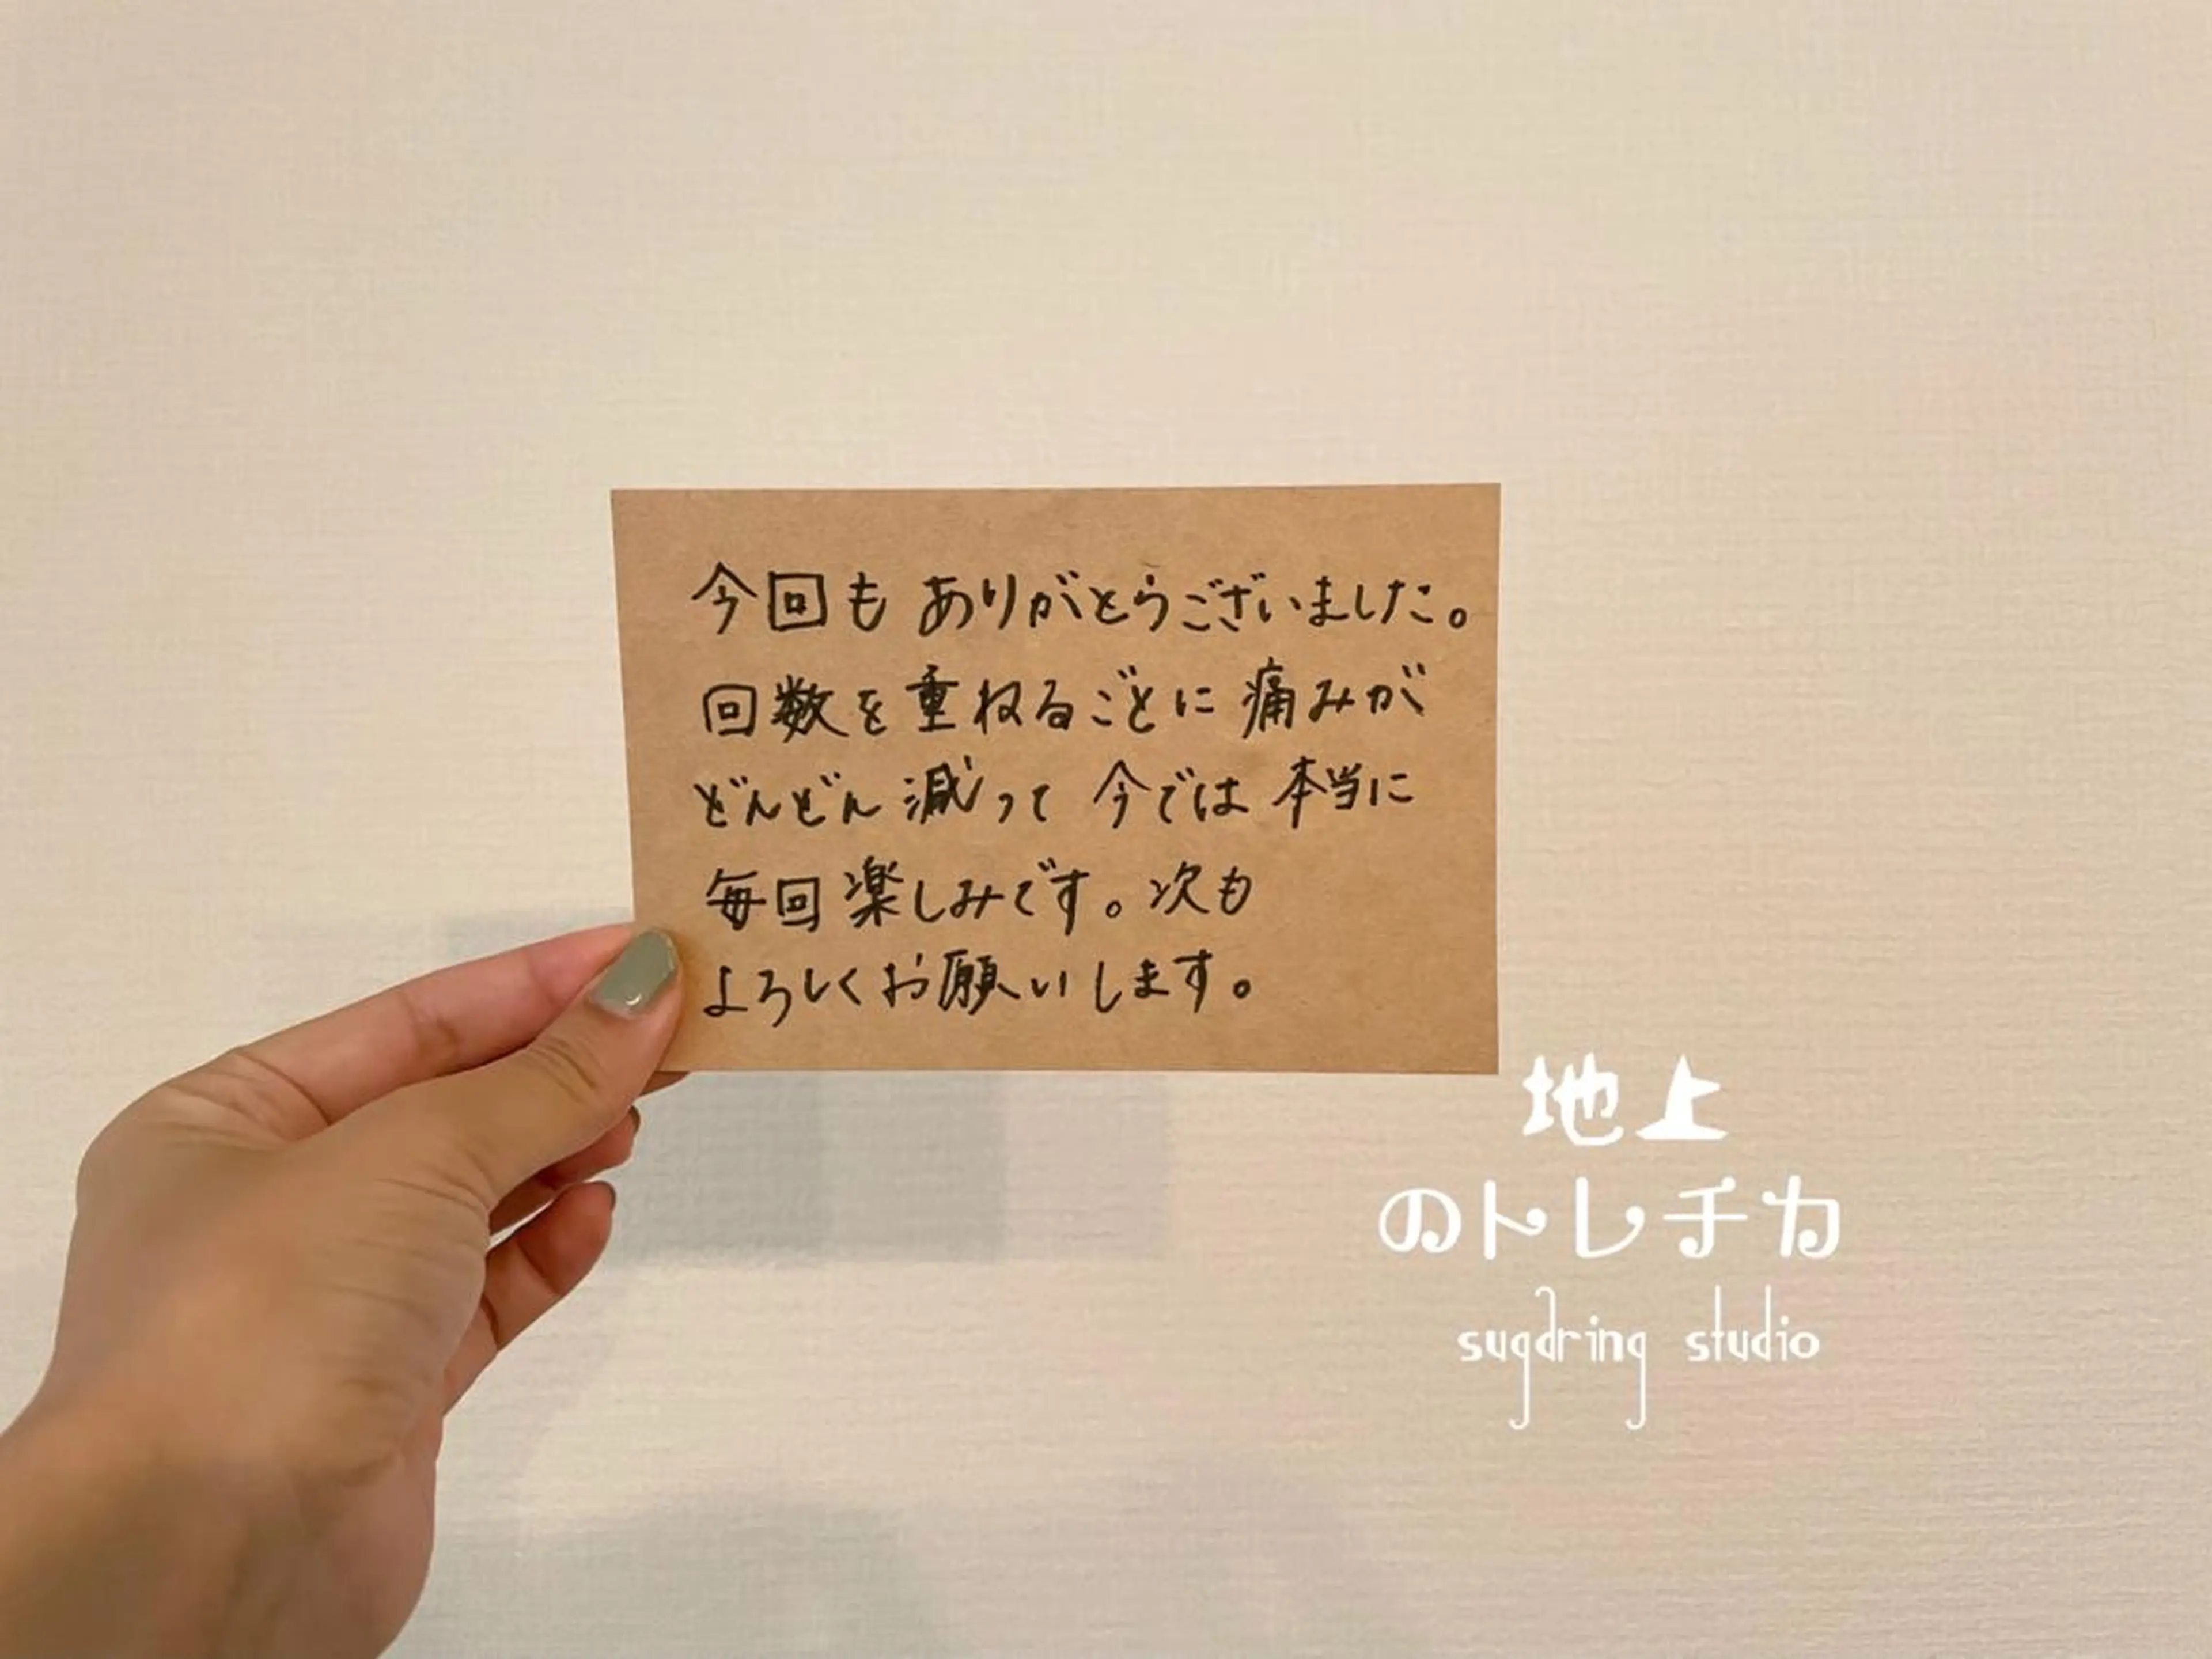 今回も ありがとうございました。
回数を重ねるごとに 痛みが
どんどん 減って 今では 本当に
毎回 楽しみです。次も
よろしくお願いします。
地上
のトレチカ
sugaring studio